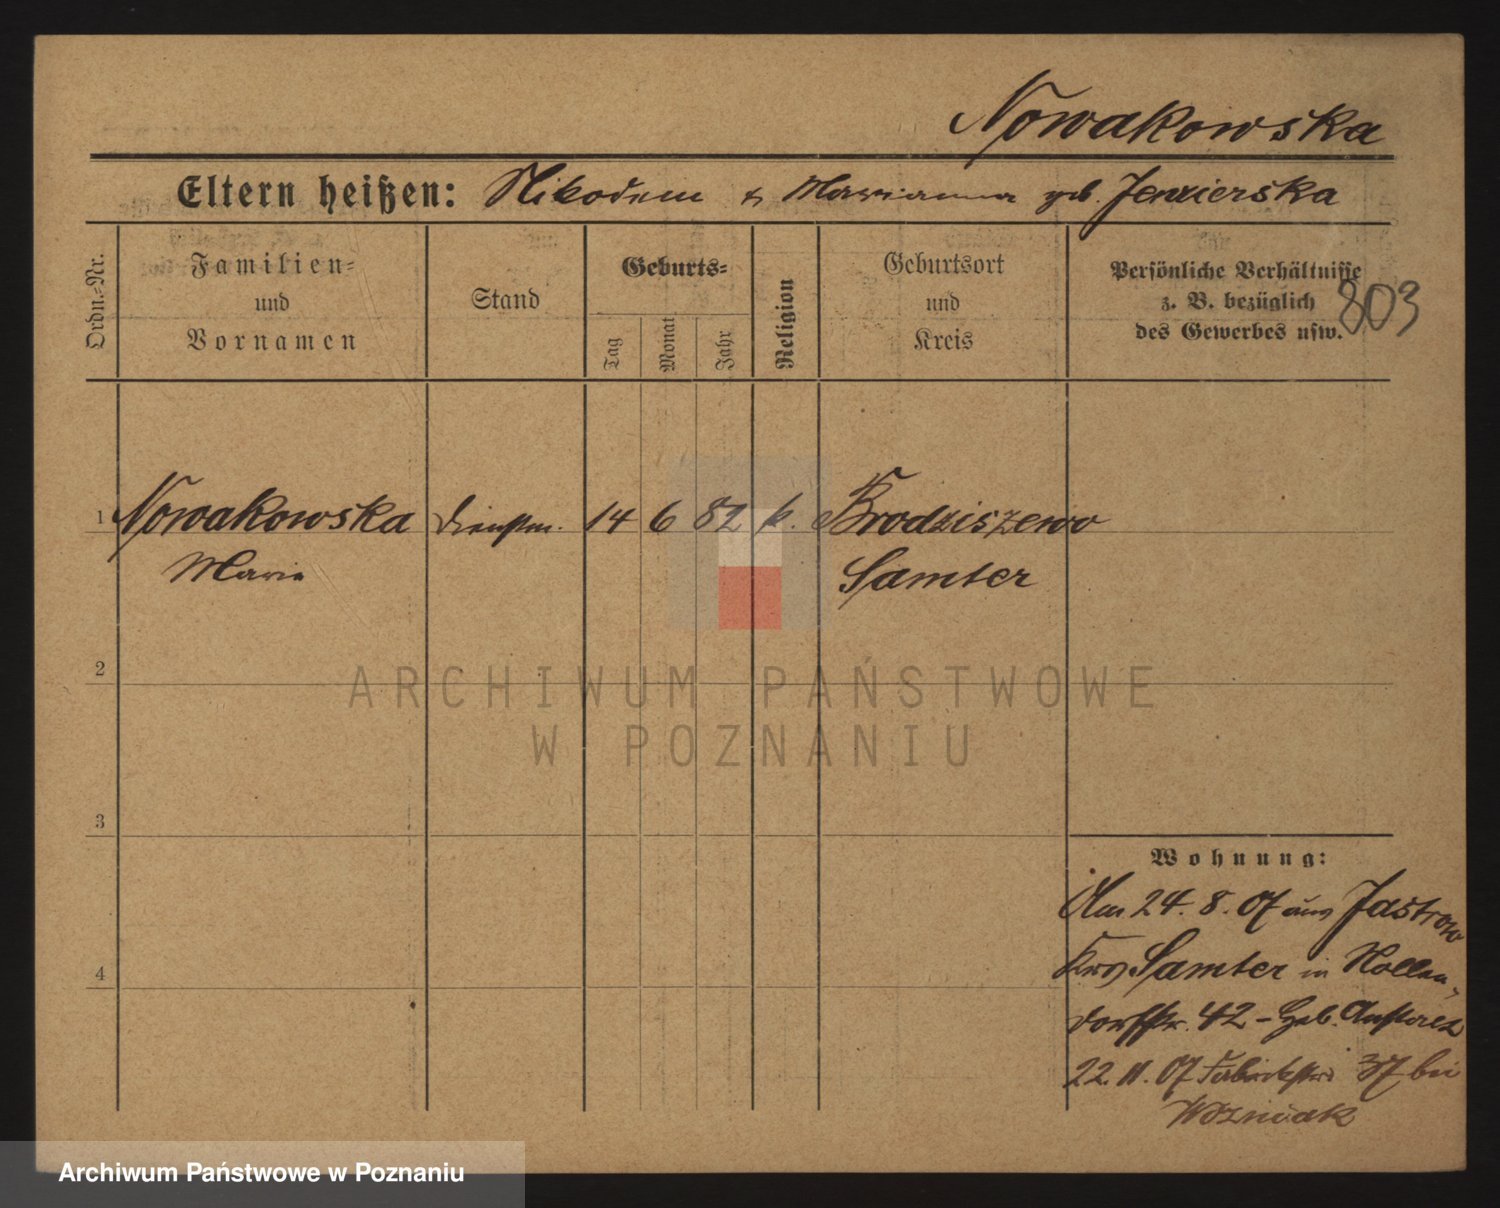 Nowakowska
Eltern heißen: Nikodem & Marianna geb. Jenzierska
Ordn.-Nr.
Familien-
und
Vornamen
Stand
Geburts-
Tag
Monat
Jahr
Religion
Geburtsort
und
Kreis
Persönliche Verhältnisse
z. B. bezüglich
des Gewerbes usw.
803
1 Nowakowska Dienstm. 14 6 82 k. Brodziszewo
Marie Samter
2
ARCHIWUM PAŃSTWOWE
W POZNANIU
3
Wohnung:
Am 24. 8. 07 aus Jastrow
Krs Samter in Nollen-
4
dorfstr. 42 - Geb. Anstalt
22. 11. 07 37 bei
Wozniak
Archiwum Państwowe w Poznaniu